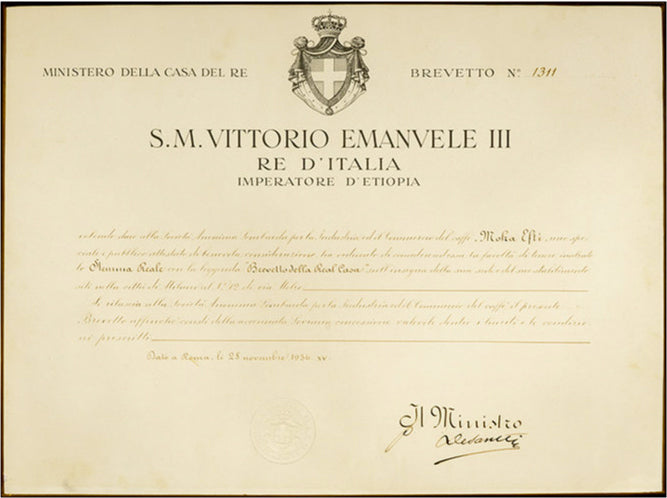 MINISTERO DELLA CASA DEL RE
BREVETTO N° 1311
S.M. VITTORIO EMANVELE III
RE D'ITALIA
IMPERATORE D'ETIOPIA
volendo dare alla Società Anonima Lombarda per la Industria ed il Commercio del caffè "Moka Efti" uno spe-
ciale e pubblico attestato di Sovrana considerazione ha ordinato di concedere ad essa la facoltà di tenere innalzato
lo Stemma Reale con la leggenda "Brevetto della Real Casa" sull'insegna della sua sede e del suo stabilimento
siti nella città di Milano al N° 12 di via
Si rilascia alla Società Anonima Lombarda per la Industria ed il Commercio del caffè il presente
Brevetto affinché consti della accennata Sovrana concessione valevole dentro i limiti e le condizio-
ni prescritte
Dato a Roma, lì 28 novembre 1936 XV.
Il Ministro